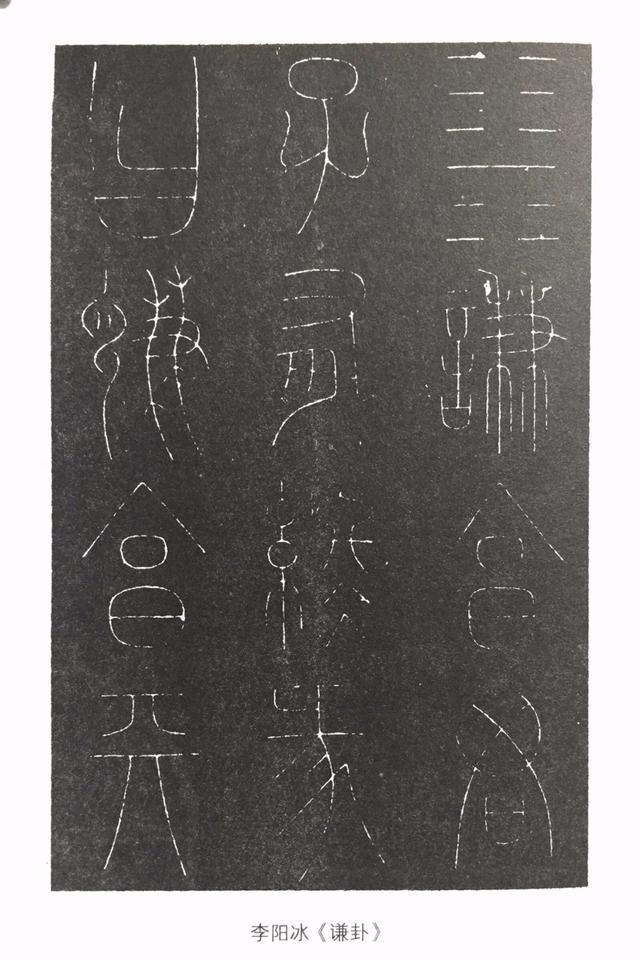 ䷎謙亨君
子有終彖
曰謙亨天
李阳冰《谦卦》